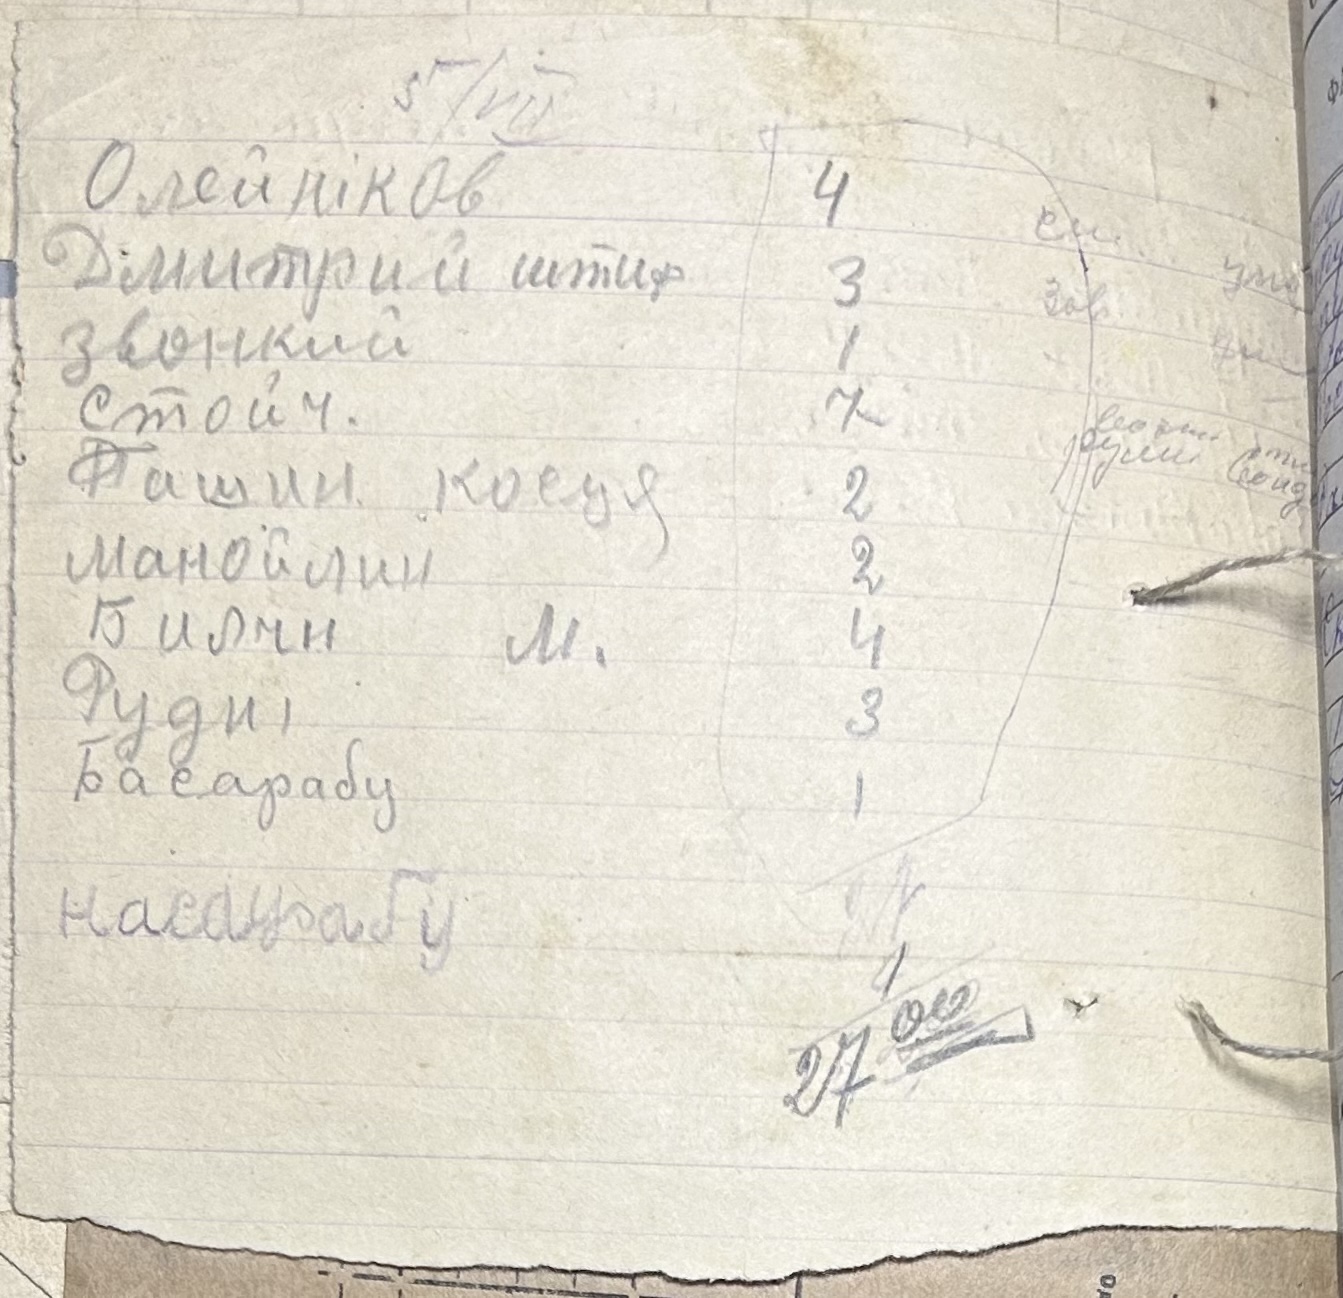 5/VII
Олейніков 4
Дмитрий штих 3
Звонкий 1
Стойч. 7
Пашин косуя 2
Манойлин 2
Билчн М. 4
Рудні 3
Басарабу 1
насарабу
1
27 00
зав